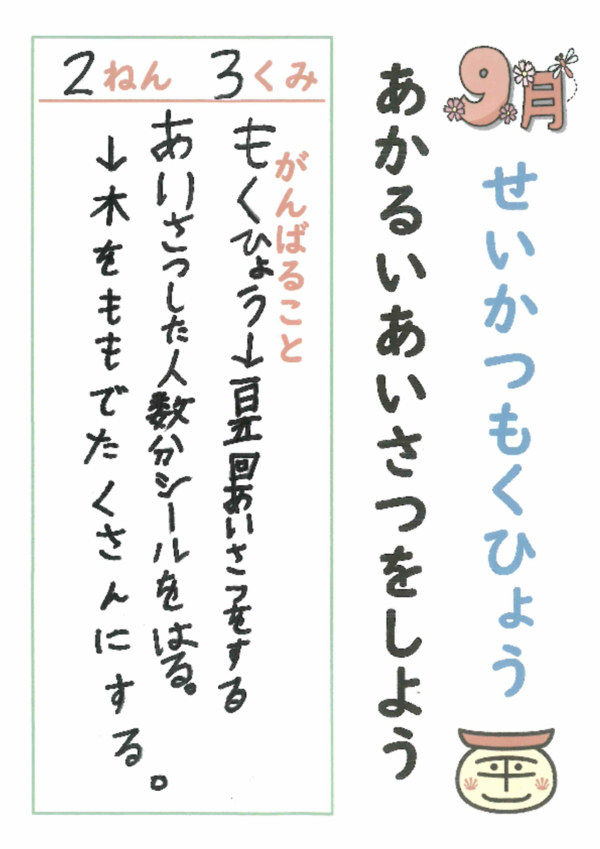 9月
せいかつもくひょう
あかるいあいさつをしよう
2ねん 3くみ
がんばること
もくひょう↓一日五回あいさつをする
あいさつした人数分シールをはる。
↓木をももでたくさんにする。